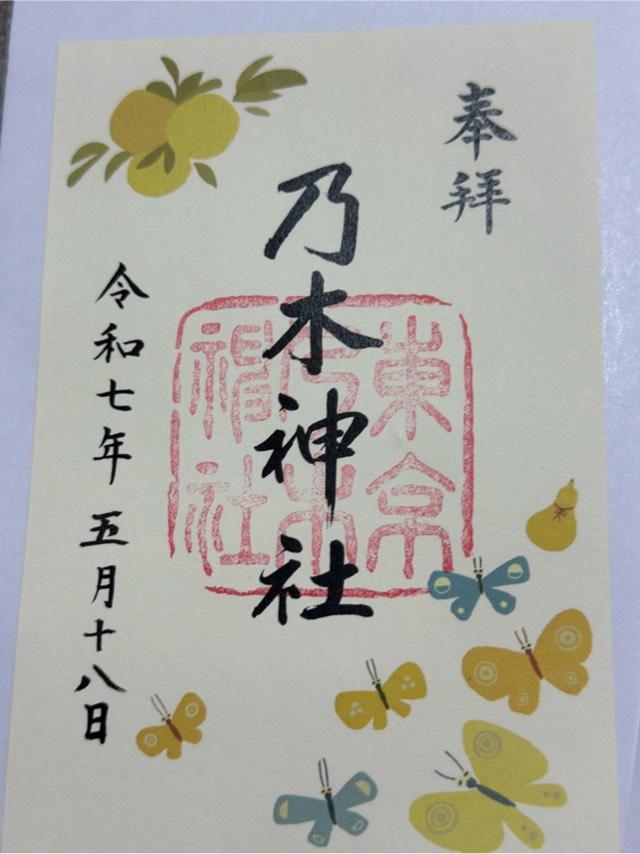 奉拝
乃木神社
東京乃木神社
令和七年 五月十八日